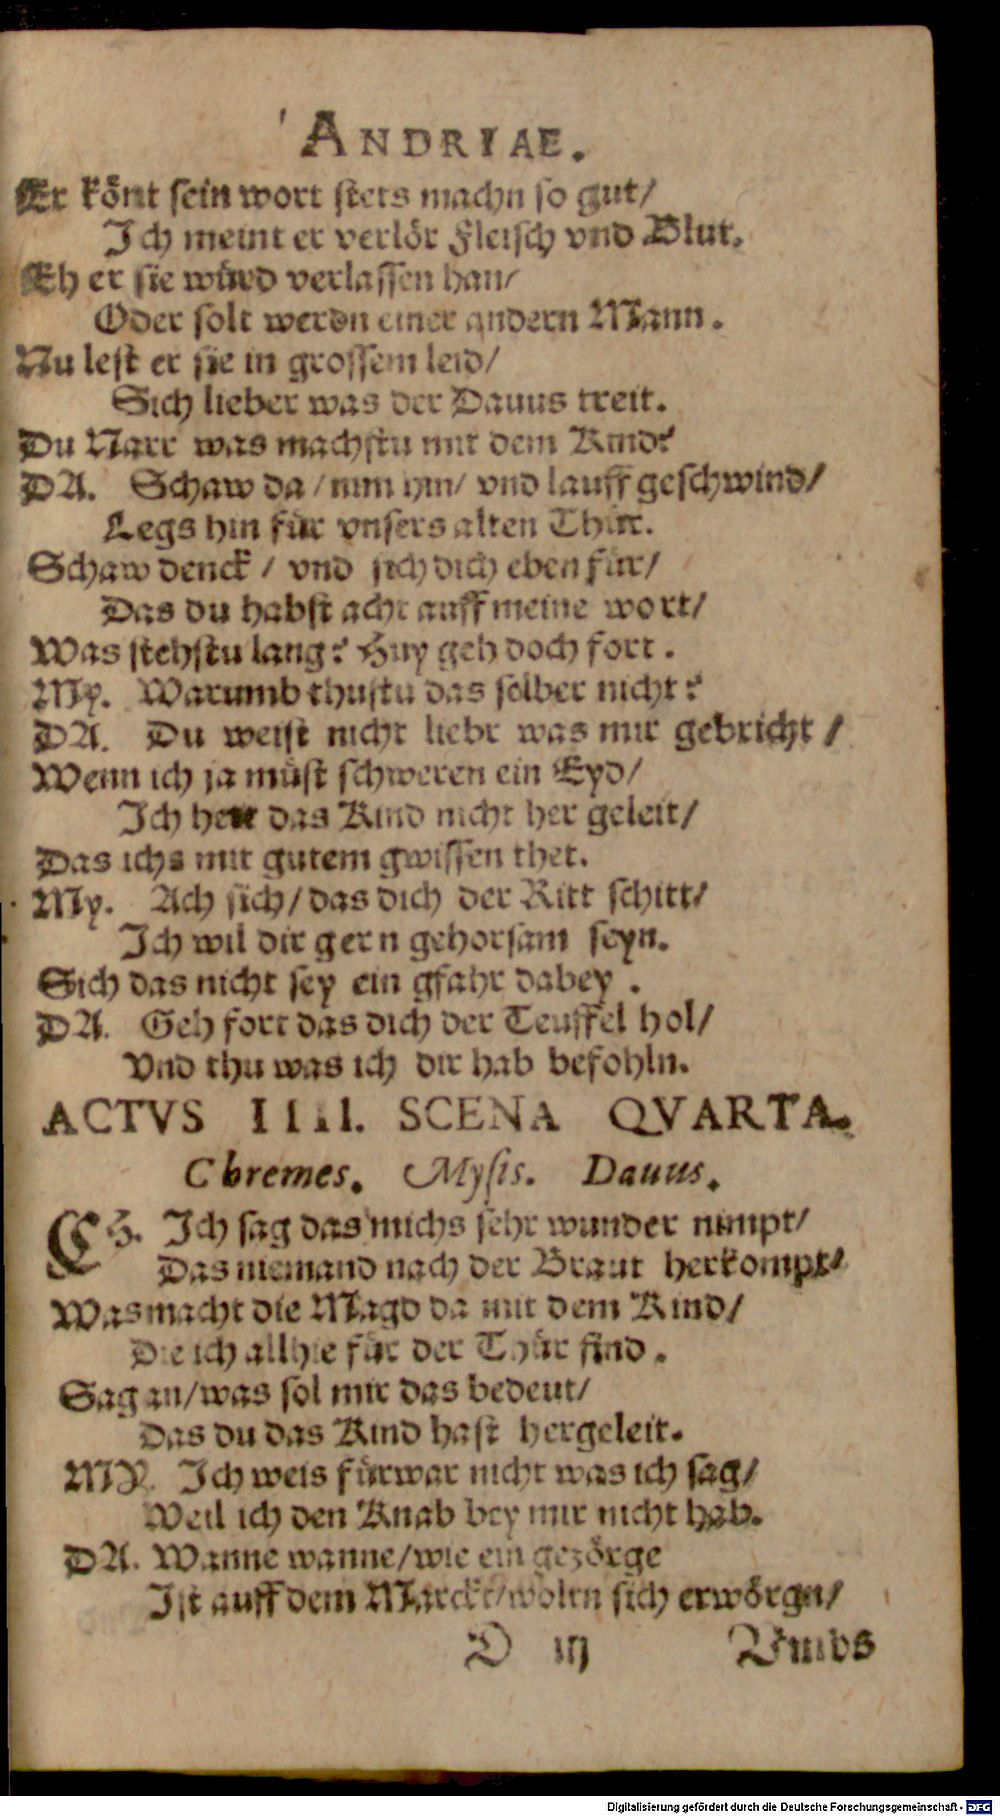 ANDRIAE.
Er könt sein wort stets machn so gut/
Ich meint er verlör Fleisch vnd Blut.
Eh er sie würd verlassen han/
Oder solt werdn einer andern Mann.
Nu lest er sie in grossem leid/
Sich lieber was der Dauus treit.
Du Narr was machstu mit dem Kind?
DA. Schaw da/nim hin/ vnd lauff geschwind/
Legs hin für vnsers alten Thür.
Schaw denck / vnd sich dich eben für/
Das du habst acht auff meine wort/
Was stehstu lang? Huy geh doch fort.
My. Warumb thustu das selber nicht?
DA. Du weist nicht liebr was mir gebricht /
Wenn ich ja müst schweren ein Eyd/
Ich hett das Kind nicht her geleit/
Das ichs mit gutem gwissen thet.
My. Ach sich/das dich der Ritt schitt/
Ich wil dir gern gehorsam seyn.
Sich das nicht sey ein gfahr dabey.
DA. Geh fort das dich der Teuffel hol/
Vnd thu was ich dir hab befohln.
ACTVS IIII. SCENA QVARTA.
Chremes. Mysis. Dauus.
CH. Ich sag das michs sehr wunder nimpt/
Das niemand nach der Braut herkompt/
Was macht die Magd da mit dem Kind/
Die ich allhie für der Thür find.
Sag an/was sol mir das bedeut/
Das du das Kind hast hergeleit.
MY. Ich weis fürwar nicht was ich sag/
Weil ich den Knab bey mir nicht hab.
DA. Wanne wanne/wie ein gezörge
Ist auff dem Marckt/wöltn sich erwörgn/
D iij Vmbs
Digitalisierung gefördert durch die Deutsche Forschungsgemeinschaft - DFG